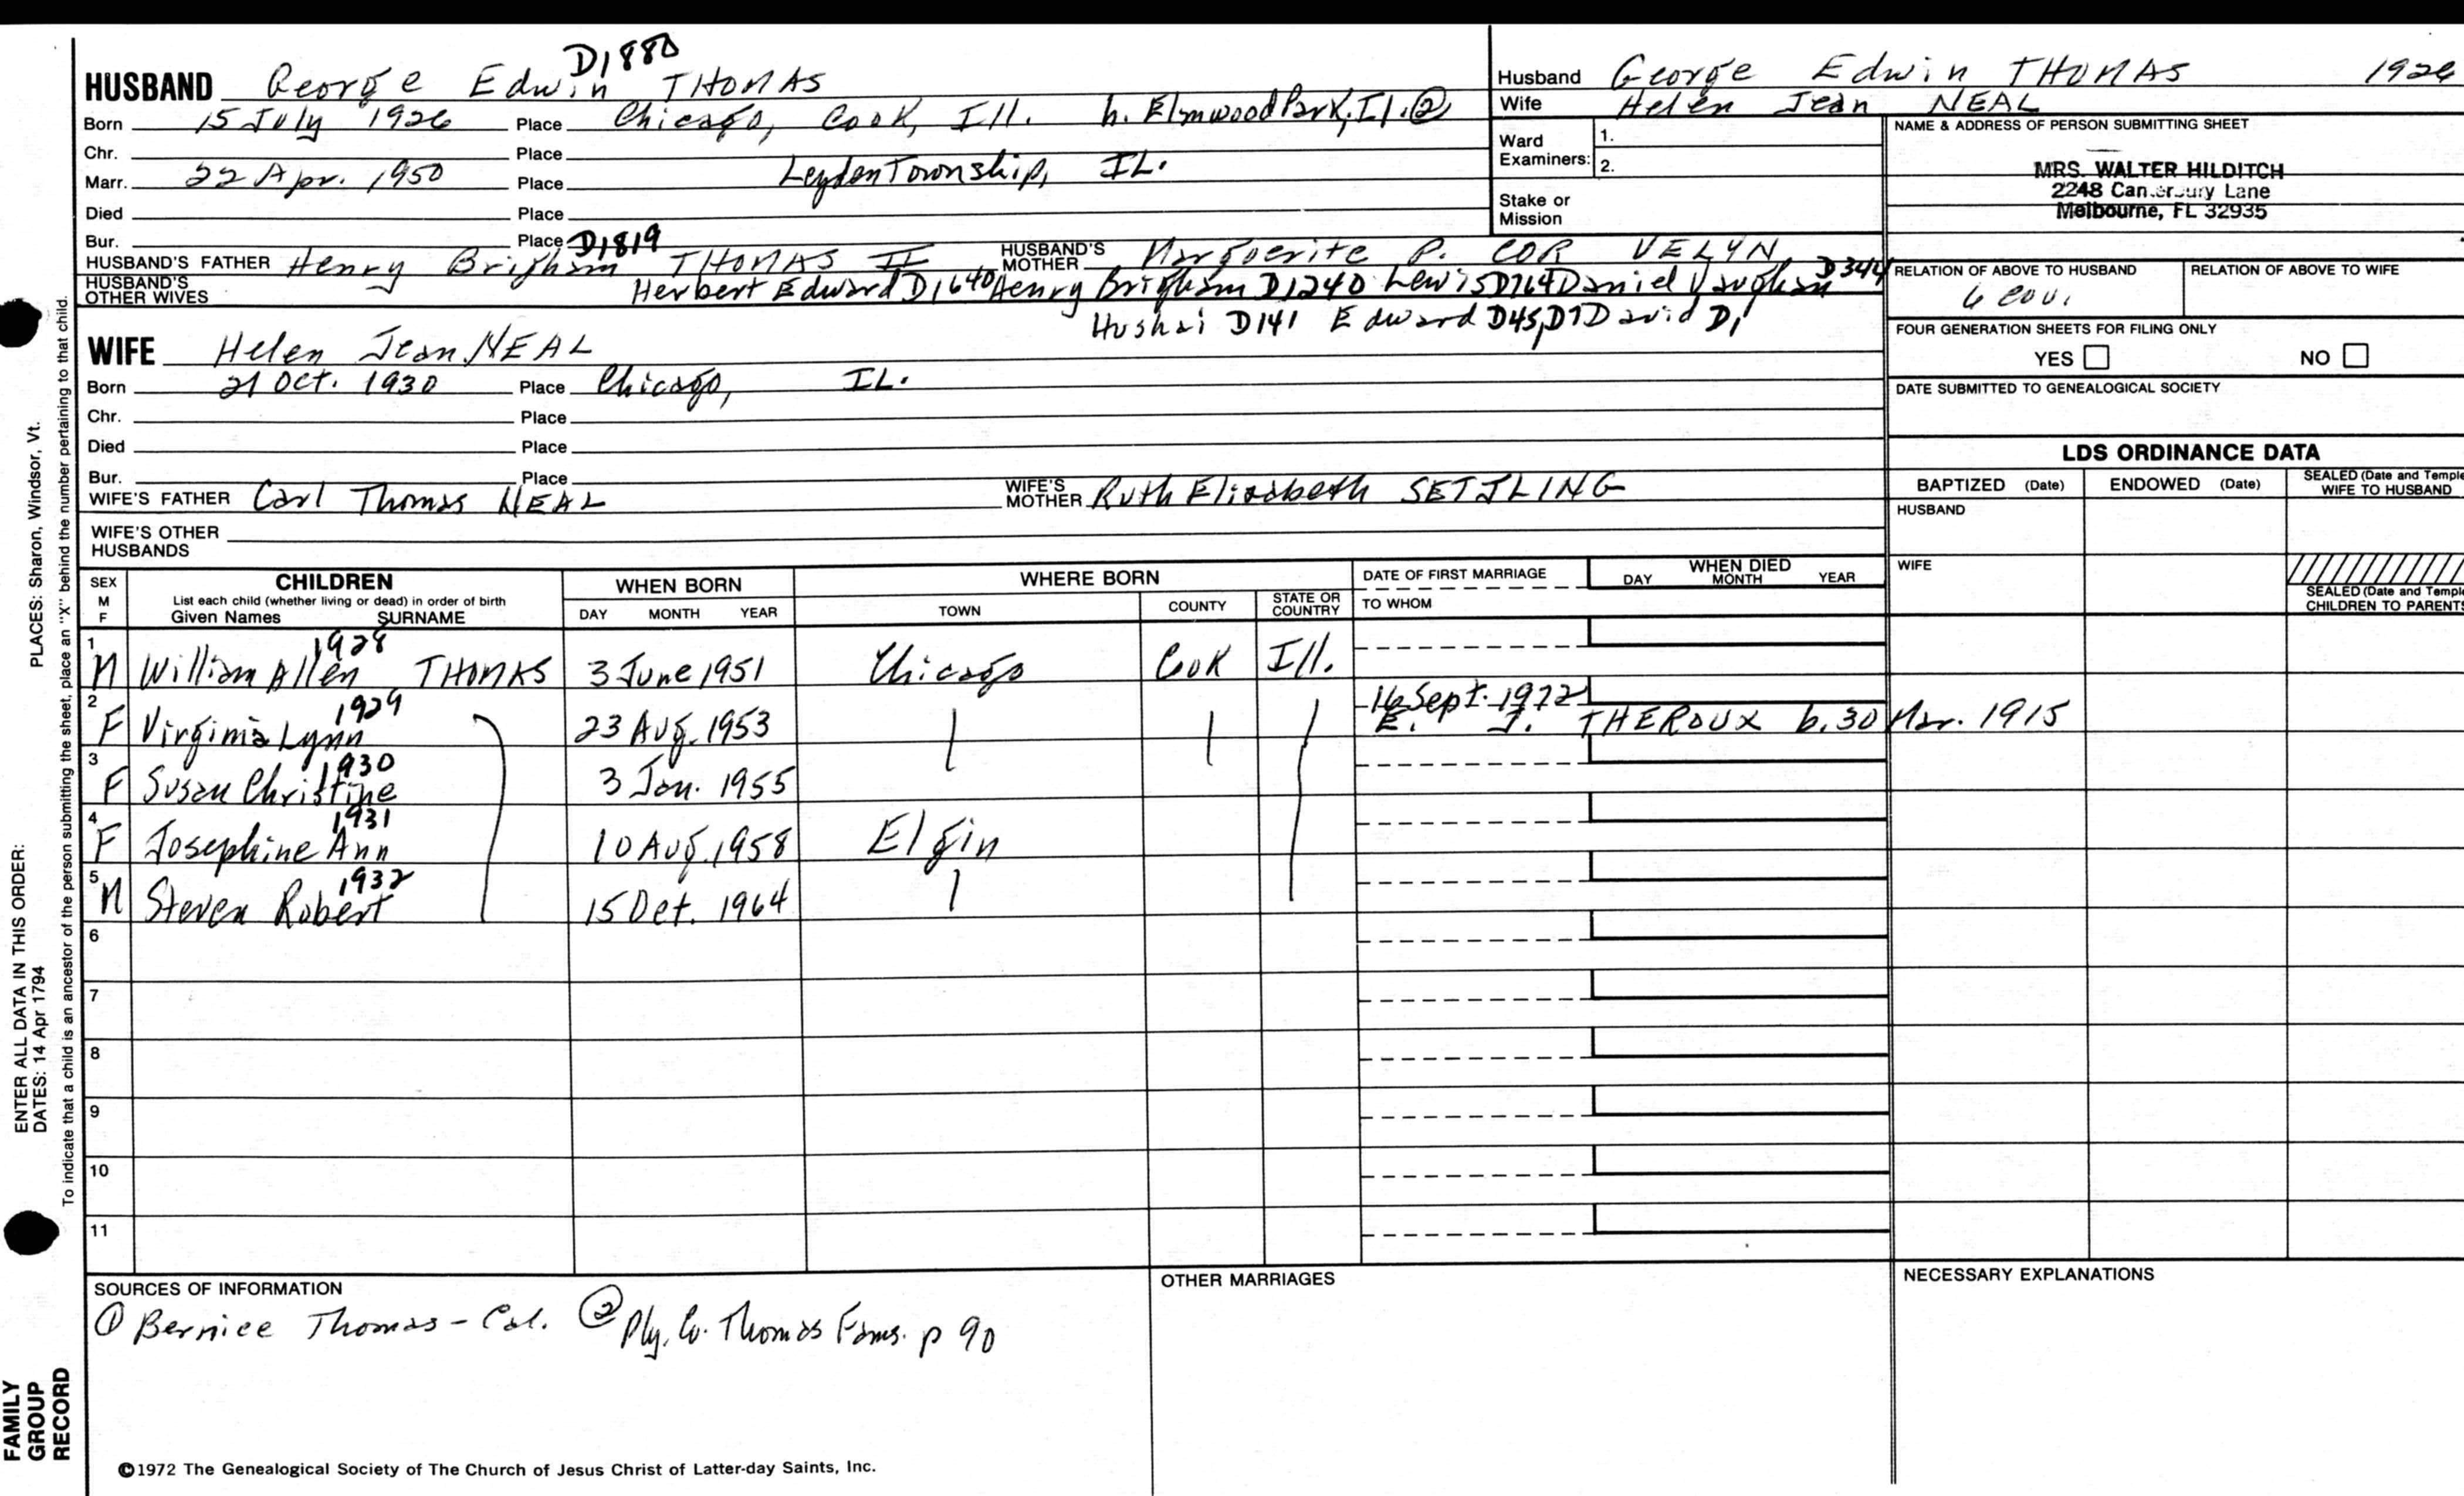 D1880
HUSBAND George Edwin THOMAS
Born 15 July 1926 Place Chicago, Cook, Ill. h. Elmwood Park, Il. ②
Chr. Place
Marr. 22 Apr. 1950 Place Leyden Township, IL.
Died Place
Bur. Place D1819
HUSBAND'S FATHER Henry Brigham THOMAS II HUSBAND'S MOTHER Marguerite P. COR VELYN
HUSBAND'S OTHER WIVES Herbert Edward D1640 Henry Brigham D1240 Lewis D764 Daniel Vaughan D344
Hushai D141 Edward D45, D7 David D1
WIFE Helen Jean NEAL
Born 21 Oct. 1930 Place Chicago, IL.
Chr. Place
Died Place
Bur. Place
WIFE'S FATHER Carl Thomas NEAL WIFE'S MOTHER Ruth Elizabeth SETTLING
WIFE'S OTHER HUSBANDS
Husband George Edwin THOMAS 1926
Wife Helen Jean NEAL
Ward Examiners: 1.
2.
Stake or Mission
NAME & ADDRESS OF PERSON SUBMITTING SHEET
MRS. WALTER HILDITCH
2248 Canterbury Lane
Melbourne, FL 32935
RELATION OF ABOVE TO HUSBAND RELATION OF ABOVE TO WIFE
6 cou.
FOUR GENERATION SHEETS FOR FILING ONLY
YES NO
DATE SUBMITTED TO GENEALOGICAL SOCIETY
LDS ORDINANCE DATA
BAPTIZED (Date) ENDOWED (Date) SEALED (Date and Temple WIFE TO HUSBAND
HUSBAND
WIFE
SEALED (Date and Temple CHILDREN TO PARENTS
SEX M F CHILDREN WHEN BORN WHERE BORN DATE OF FIRST MARRIAGE WHEN DIED
List each child (whether living or dead) in order of birth
Given Names SURNAME DAY MONTH YEAR TOWN COUNTY STATE OR COUNTRY TO WHOM DAY MONTH YEAR
1928
1 M William Allen THOMAS 3 June 1951 Chicago Cook Ill.
1929 16 Sept. 1972
2 F Virginia Lynn 23 Aug. 1953 E. J. THEROUX b. 30 Mar. 1915
1930
3 F Susan Christine 3 Jan. 1955
1931
4 F Josephine Ann 10 Aug. 1958 Elgin
1932
5 M Steven Robert 15 Oct. 1964
6
7
8
9
10
11
SOURCES OF INFORMATION
① Bernice Thomas - Cal. ② Ply. Co. Thomas Fams. p 90
OTHER MARRIAGES
NECESSARY EXPLANATIONS
©1972 The Genealogical Society of The Church of Jesus Christ of Latter-day Saints, Inc.
FAMILY GROUP RECORD
ENTER ALL DATA IN THIS ORDER:
DATES: 14 Apr 1794
PLACES: Sharon, Windsor, Vt.
To indicate that a child is an ancestor of the person submitting the sheet, place an "X" behind the number pertaining to that child.